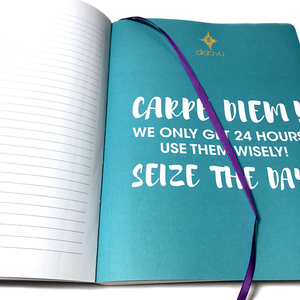 deja vu
CARPE DIEM!
WE ONLY GET 24 HOURS
USE THEM WISELY!
SEIZE THE DAY